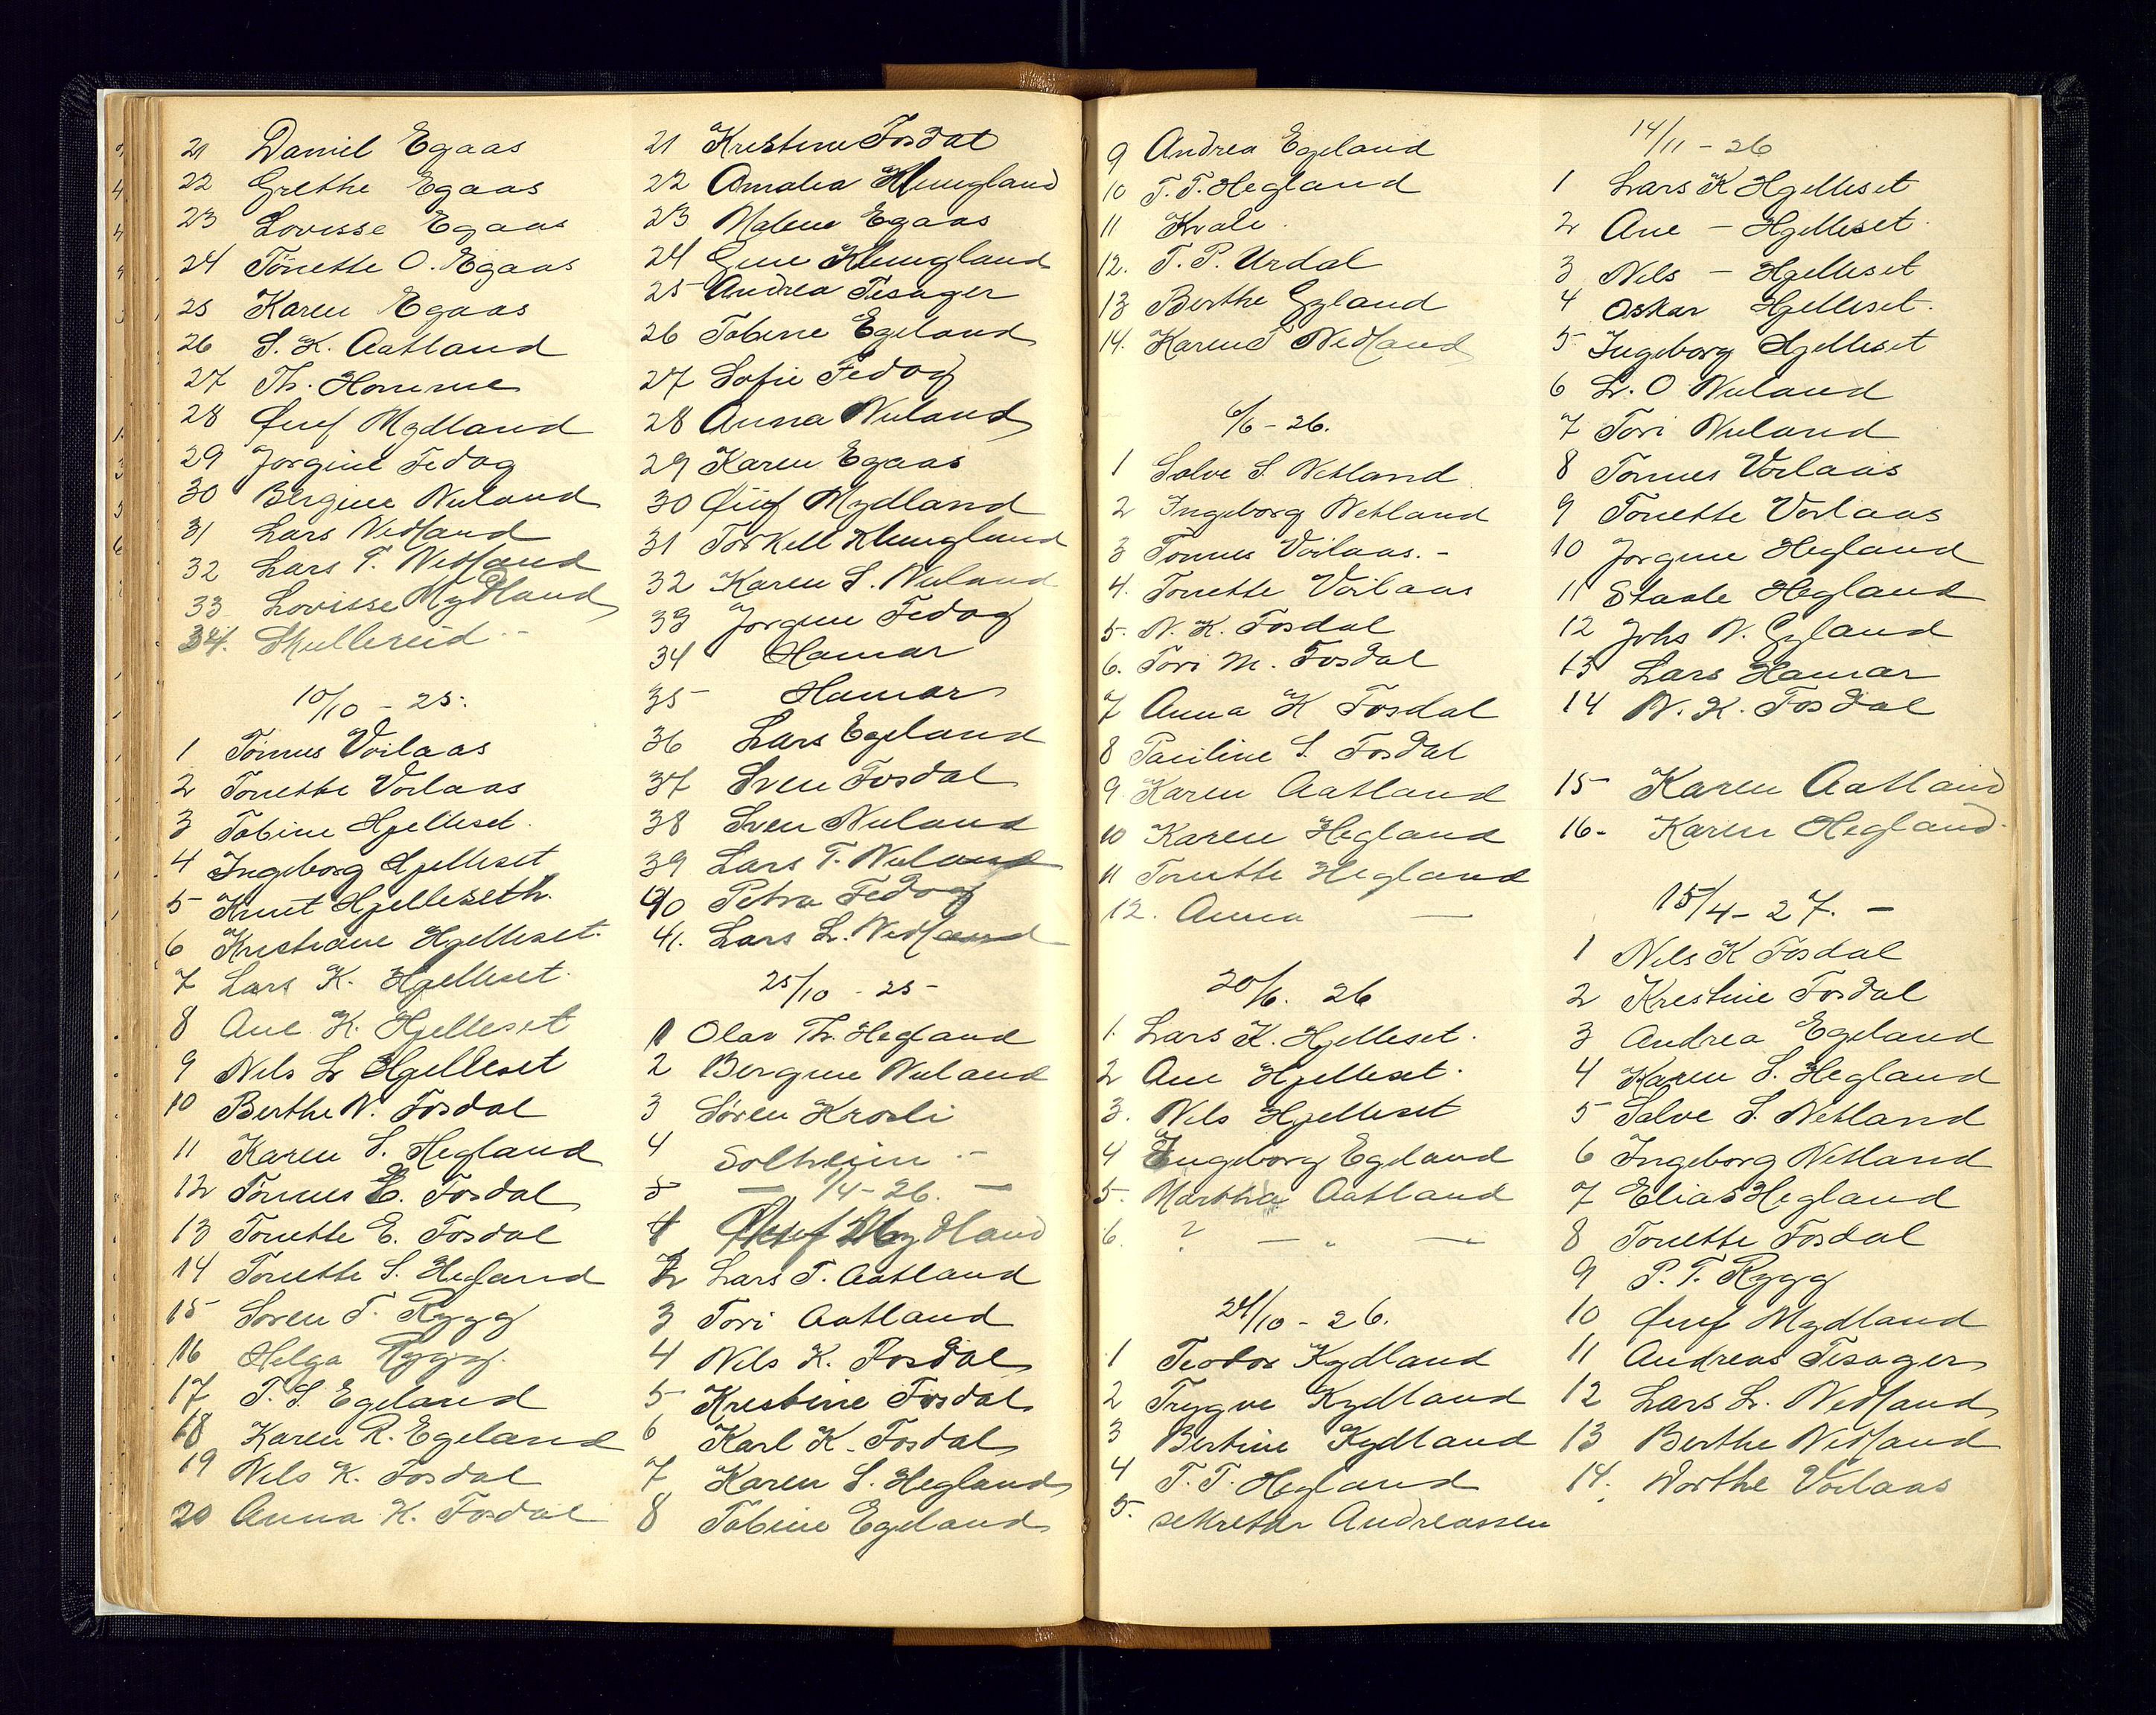 21 Daniel Egaas
22 Grethe Egaas
23 Lovisse Egaas
24 Tönette O. Egaas
25 Karen Egaas
26 S. K. Aatland
27 Th. Homme
28 Mydland
29 Jorgine Fedog
30 Bergine Nuland
31 Lars Nedland
32 Lars T. Nedland
33 Lovisse Mydland
34. Skullereid -
10/10 - 25.
1 Tönnes Vorlaas
2 Tonette Vorlaas
3 Tobine Hjelleset.
4 Ingeborg Hjelleset
5 Knut Hjelleseth.
6 Kristiane Hjelleset.
7 Lars K. Hjelleset.
8 Ane K. Hjelleset
9 Nils L. Hjelleset
10 Berthe N. Fosdal
11 Karen S. Hegland
12 Tönnes E. Fosdal
13 Tonette E. Fosdal
14 Tonette S. Hegland
15 Soren T. Rygg
16 Helga Rygg.
17 T. S. Egeland
18 Karen R. Egeland
19 Nils K. Fosdal
20 Anna K. Fosdal
21 Kristine Fosdal
22 Amalia Klungland
23 Malene Egaas
24 Gine Klungland
25 Andrea Tesager
26 Tobine Egeland
27 Sofie Fedog
28 Anna Nuland
29 Karen Egaas
30 Mydland
31 Torkell Klungland
32 Karen S. Nuland
33 Jorgine Fedog
34 Hamar
35 Hamar
36 Lars Egeland
37 Sven Fosdal
38 Sven Nuland
39 Lars T. Nuland
40 Petra Fedog
41. Lars L. Nedland
25/10 - 25 -
1 Olav Th. Hegland
2 Bergine Nuland
3 Søren Krosli
4 Solheim -
5 — 1/4 - 26. —
1 Mydland
2 Lars T. Aatland
3 Tori Aatland
4 Nils K. Fosdal
5 Kristine Fosdal
6 Karl K. Fosdal
7 Karen S. Hegland
8 Tobine Egeland
9 Andrea Egeland
10 T. T. Hegland
11 Kvale.
12. T. P. Urdal
13 Berthe Gyland
14. Karen T Nedland
6/6 - 26.
1 Salve S. Netland
2 Ingeborg Netland
3 Tonnes Vorlaas. -
4. Tonette Vorlaas
5. N. K. Fosdal
6. Tori M. Fosdal
7 Anna K Fosdal
8 Pauline S. Fosdal
9. Karen Aatland
10 Karen Hegland
11 Tonette Hegland
12. Anna —
20/6. 26
1. Lars K. Hjelleset.
2 Ane Hjelleset.
3. Nils Hjelleset
4 Ingeborg Egeland
5. Martha Aatland
6. ? — " —
24/10 - 26.
1 Teodor Kydland
2 Trygve Kydland
3 Bertine Kydland
4 T. T. Hegland
5. sekretær Andreassen
14/11 - 26
1 Lars K Hjelleset
2 Ane — Hjelleset.
3 Nils — Hjelleset
4 Oskar Hjelleset.
5 Ingeborg Hjelleset
6 L. O Nuland
7 Tori Nuland
8 Tonnes Vorlaas
9 Tonette Vorlaas
10 Jorgine Hegland
11 Staale Hegland
12 Johs N. Gyland
13 Lars Hamar
14 N. K. Fosdal
15 Karen Aatland
16. Karen Hegland.
15/4 - 27. —
1 Nils K Fosdal
2 Kristine Fosdal
3 Andrea Egeland
4 Karen S. Hegland
5 Salve S. Netland
6 Ingeborg Netland
7 Elias Hegland
8 Tonette Fosdal
9 P. T. Rygg
10 Mydland
11 Andreas Tesager
12 Lars L. Nedland
13 Berthe Nedland
14. Dorthe Vorlaas